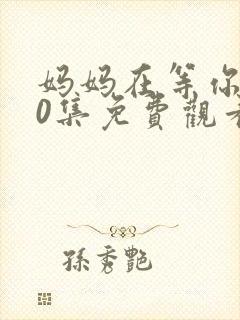 妈妈在等你
0集免費觀看
孫秀艷